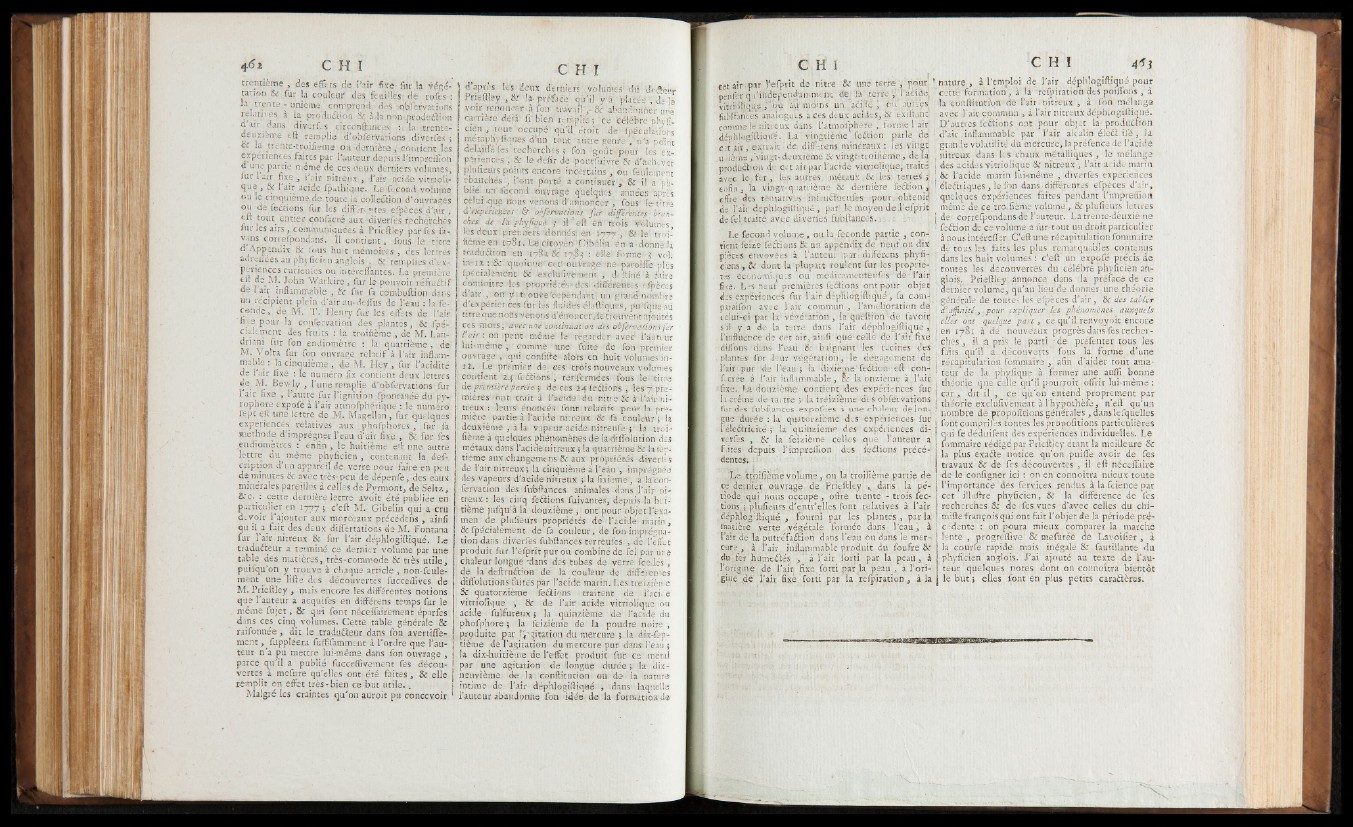 462 C H I
trentième , des effets de l'air fixe sur la végé-
tation & sur la couleur des feuilles de roses :
la trente-unième comprend des observations
relatives à la production & à la non-production
d'air dans diverses circonstances : la trente-
deuxième est remplie d'observations diverses ;
& la trente-troisième ou dernière , contient les
expériences faites par l'auteur depuis l'impression
d'une partie même de ces deux derniers volumes,
sur l'air fixe , l'air nitreux , l'air acide vitrioli-
que , & l'air acide spathique. Le second volume
ou le cinquième de toute la collection d'ouvrages
ou de sections sur les différentes espèces d'air ,
est tout entier consacré aux diverses recherches
sur les airs , communiquées à Priestley par ses sa-
vans correspondans. Il contient , sous le titre
d'Appendix & sous huit mémoires , des lettres
adressées au physicien anglois , & remplies d'ex-
périences curieuses ou intéressantes. La première
est de M. John Warkire , sur le pouvoir réfractif
de l'air inflammable , & sur sa combustion dans
un récipient plein d'air au-dessus de l'eau : la se-
conde , de M. T. Henry sur les effets de l'air
fixe pour la conservation des plantes , & spé-
cialement des fruits : la troisième , de M. Lan-
driani sur son endiomètre : la quatrième , de
M. Volta sur son ouvrage relatif à l'air inflam-
mable : la cinquième , de M. Hey , sur l'acidité
de l'air fixe : le numéro six contient deux lettres
de M. Bewly , l'une remplie d'observations sur
l'air fixe , l'autre sur l'ignition spontanée du py-
rophore exposé à l'air atmosphérique : le numéro
sept est une lettre de M. Magellan , sur quelques
expériences relatives aux phosphores , sur sa
méthode d'imprégner l'eau d'air fixe , & sur ses
endiomètres : enfin , le huitième est une autre
lettre du même physicien , contenant la des-
cription d'un appareil de verre pour faire en peu
de minutes & avec très-peu de dépense , des eaux
minérales pareilles à celles de Pyrmont, de Seltz ,
&c. : cette dernière lettre avoit été publiée en
particulier en 1777 ; c'est M. Gibelin qui a cru
devoir l'ajouter aux morceaux précédens , ainsi
qu'il a fait des deux dissertations de M. Fontana
sur l'air nitreux & sur l'air déphlogistiqué. Le
traducteur a terminé ce dernier volume par une
table des matières , très-commode & très utile ,
puisqu'on y trouve à chaque article , non-seule-
ment une liste des découvertes successives de
M. Priestley , mais encore les différentes notions
que l'auteur a acquises en différens temps sur le
même sujet , & qui sont nécessairement éparses
dans ces cinq volumes. Cette table générale &
raisonnée , dit le traducteur dans son avertisse-
ment , suppléera suffisamment à l'ordre que l'au-
teur n'a pu mettre lui-même dans son ouvrage ,
parce qu'il a publié successivement ses décou-
vertes à mesure qu'elles ont été faites , & elle
remplit en effet très-bien ce but utile.
Malgré les craintes qu'on auroit pu concevoir
C H I
d'après les deux derniers volumes du docteur
Priestley , & la préface qu'il y a placée , de le
voir renoncer à son travail , & abandonner une
carrière déjà si bien remplie ; ce célèbre physi-
cien , tout occupé qu'il étoit de spéculations
métaphysiques d'un tout autre genre , n'a point
délaissé ses recherches ; son goût pour les ex-
périences , & le desir de poursuivre & d'achever
plusieurs points encore incertains , ou seulement
ébauchés , l'ont porté à continuer , & il a pu-
blié un second ouvrage quelques années après
celui que nous venons d'annoncer , sous le titre
d'expériences & observations sur différentes bran-
ches de la physique ; il est en trois volumes,
les deux premiers donnés en 1779 , & le troi-
sième en 1781. Le citoyen Gibelin en a donné la
traduction en 1782 & 1783 : elle forme 3 vol.
in-12 : & quoique cet ouvrage ne paroisse plus
spécialement & exclusivement , destiné à faire
connoître les propriétés des différentes espèces
d'air , on y trouve cependant un grand nombre
d'expériences sur les fluides élastiques, puisque au
titre que nous venons d'énoncer, se trouvent ajoutés
ces mots, avec une continuation des observations sur
l'air : on peut même le regarder avec l'auteur
lui-même , comme une suite de son premier
ouvrage , qui consiste alors en huit volumes in-
12. Le premier de ces trois nouveaux volumes
contient 24 sections , renfermées sous le titre
de première partie ; de ces 24 sections , les 7 pre-
mières ont trait à l'acide du nitre & à l'air ni-
treux : leurs énoncés sont relatifs pour la pre-
mière partie à l'acide nitreux & sa couleur ; la
deuxième , à la vapeur acide nitreuse ; la troi-
sième à quelques phénomènes de la dissolution des
métaux dans l'acide nitreux ; la quatrième & la sep-
tième aux changemens & aux propriétés diverses
de l'air nitreux ; la cinquième à l'eau , imprégnée
des vapeurs d'acide nitreux ; la sixième , à la con-
servation des substances animales dans l'air ni-
treux : les cinq sections suivantes, depuis la hui-
tième jusqu'à la douzième , ont pour objet l'exa-
men de plusieurs propriétés de l'acide marin ,
& spécialement de sa couleur , de son imprégna-
tion dans diverses substances terreuses , de l'effet
produit sur l'esprit pur ou combiné de sel par une
chaleur longue dans des tubes de verre scellés ,
de la destruction de la couleur de différentes
dissolutions faites par l'acide marin. Les treizième
& quatorzième sections traitent de l'acide
vitriolique , & de l'air acide vitriolique ou
acide sulfureux ; la quinzième de l'acide du
phosphore ; la seizième de la poudre noire ,
produite par l'agitation du mercure ; la dix-sep-
tième de l'agitation du mercure pur dans l'eau ;
la dix-huitième de l'effet produit sur ce métal
par une agitation de longue durée ; la dix-
neuvième de la constitution ou de la nature
intime de l'air déphlogistiqué , dans laquelle
l'auteur abandonne son idée de la formation de
C H I
cet air par l'esprit de nitre & une terre , pour
penser qu'indépendamment de la terre , l'acide
vitriolique , ou au moins un acide , ou autres
substances analogues à ces deux acides, & existant
comme le nitreux dans l'atmosphère , forme l'air
déphlogistiqué. La vingtième section parle de
cet air , extrait de différens minéraux : les vingt
unième , vingt-deuxième & vingt-troisième , de la
production de cet air par l'acide vitriolique, traité
avec le fer , les autres métaux & les terres ;
enfin , la vingt-quatrième & dernière section ,
offre des tentatives infructueuses pour obtenir
de l'air déphlogistiqué , par le moyen de l'esprit
de sel traité avec diverses substances.
Le second volume , ou la seconde partie , con-
tient seize sections & un appendix de neuf ou dix
pièces envoyées à l'auteur par différens physi-
ciens , & dont la plupart roulent sur les proprié-
tés économiques ou médicamenteuses de l'air
fixe. Les neuf premières sections ont pour objet
des expériences sur l'air déphlogistiqué , sa com-
paraison avec l'air commun , l'amélioration de
celui-ci par la végétation , la question de savoir
s'il y a de la terre dans l'air déphlogistiqué ,
l'influence de cet air, ainsi que celle de l'air fixe
dissous dans l'eau & baignant les racines des
plantes sur leur végétation, le dégagement de
l'air pur de l'eau ; la dixième section est con-
sacrée à l'air inflammable, & la onzième à l'air
fixe. La douzième contient des expériences sur
la crême de tartre ; la treizième des observations
sur des substances exposées à une chaleur de lon-
gue durée : la quatorzième des expériences sur
l'électricité ; la quinzième des expériences di-
verses , & la seizième celles que l'auteur a
faites depuis l'impression des sections précé-
dentes.
Le troisième volume , ou la troisième partie de
ce dernier ouvrage de Priestley , dans la pé-
riode qui nous occupe , offre trente-trois sec-
tions ; plusieurs d'entr'elles sont relatives à l'air
déphlogistiqué , fourni par les plantes , par la
matière verte végétale formée dans l'eau , à
l'air de la putréfaction dans l'eau ou dans le mer-
cure , à l'air inflammable produit du soufre &
du fer humectés , à l'air sorti par la peau , à
l'origine de l'air fixe sorti par la peau , à l'ori-
gine de l'air fixe sorti par la respiration , à la
C H I 463
nature , à l'emploi de l'air déphlogistiqué pour
cette formation , à la respiration des poissons , à
la constitution de l'air nitreux , à son mélange
avec l'air commun , à l'air nitreux déphlogistiqué.
D'autres sections ont pour objet la production
d'air inflammable par l'air alcalin électrisé , la
grande volatilité du mercure, la présence de l'acide
nitreux dans les chaux métalliques , le mélange
des acides vitriolique & nitreux , l'air acide marin
& l'acide marin lui-même , diverses expériences
électriques , le son dans différentes espèces d'air ,
quelques expériences faites pendant l'impression
même de ce troisième volume , & plusieurs lettres
de correspondans de l'auteur. La trente-deuxième
section de ce volume a sur-tout un droit particulier
à nous intéresser. C'est une récapitulation sommaire
de tous les faits les plus remarquables contenus
dans les huit volumes : c'est un exposé précis de
toutes les découvertes du célèbre physicien an-
glois. Priestley annonce dans la préface de ce
dernier volume, qu'au lieu de donner une théorie
générale de toutes les espèces d'air , & des tables
d'affinité , pour expliquer les phénomènes auxquels
elles ont quelque part , ce qu'il renvoyoit encore
en 1781 à de nouveaux progrès dans ses recher-
ches , il a pris le parti de présenter tous les
faits qu'il a découverts sous la forme d'une
récapitulation sommaire , afin d'aider tout ama-
teur de la physique à former une aussi bonne
théorie que celle qu'il pourroit offrir lui-même :
car , dit il , ce qu'on entend proprement par
théorie exclusivement à l'hypothèse, n'est qu'un
nombre de propositions générales , dans lesquelles
sont comprises toutes les propositions particulières
qui se déduisent des expériences individuelles. Le
sommaire rédigé par Priestley étant la meilleure &
la plus exacte notice qu'on puisse avoir de ses
travaux & de ses découvertes , il est nécessaire
de le consigner ici : on en connoîtra mieux toute
l'importance des services rendus à la science par
cet illustre physicien, & la différence de ses
recherches & de ses vues d'avec celles du chi-
miste françois qui ont fait l'objet de la période pré-
cédente : on poura mieux comparer la marche
lente , progressive & mesurée de Lavoisier , à
la course rapide mais inégale & sautillante du
physicien anglois. J'ai ajouté au texte de l'au-
teur quelques notes dont on connoîtra bientôt
le but ; elles sont en plus petits caractères.